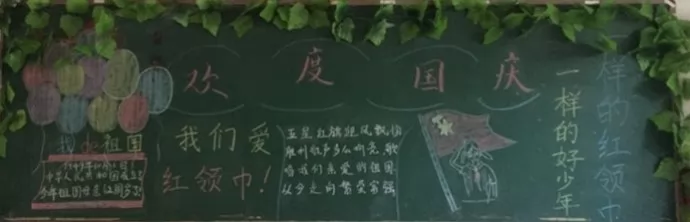 欢度国庆
我的祖国
我们爱
红领巾!
五星红旗迎风飘扬
胜利歌声多么响亮 歌
唱我们亲爱的祖国
从今走向繁荣富强
一样的好少年
一样的红领巾